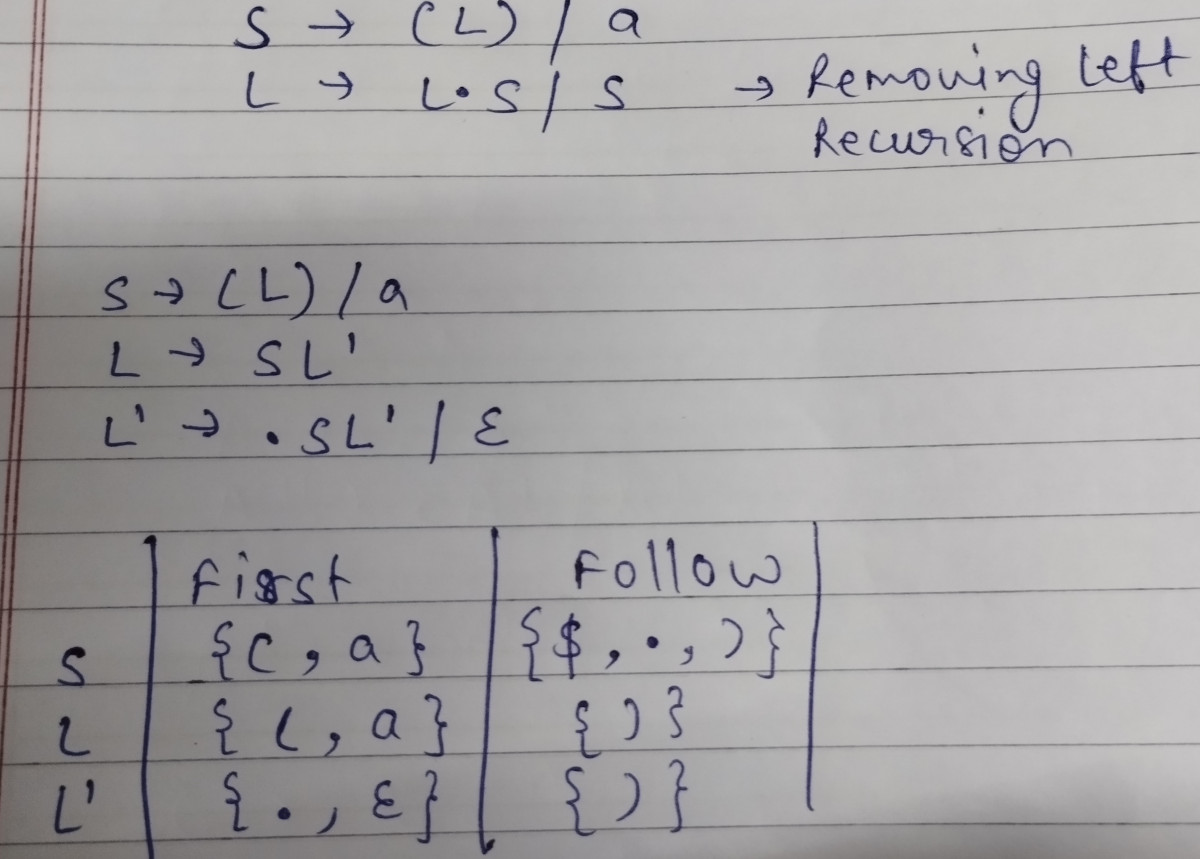 S → (L) / a
L → L·S / S → Removing Left
Recursion
S → (L) / a
L → SL'
L' → ·SL' / ε
First Follow
S {(, a} {$, ·, )}
L {(, a} { ) }
L' {·, ε} { ) }